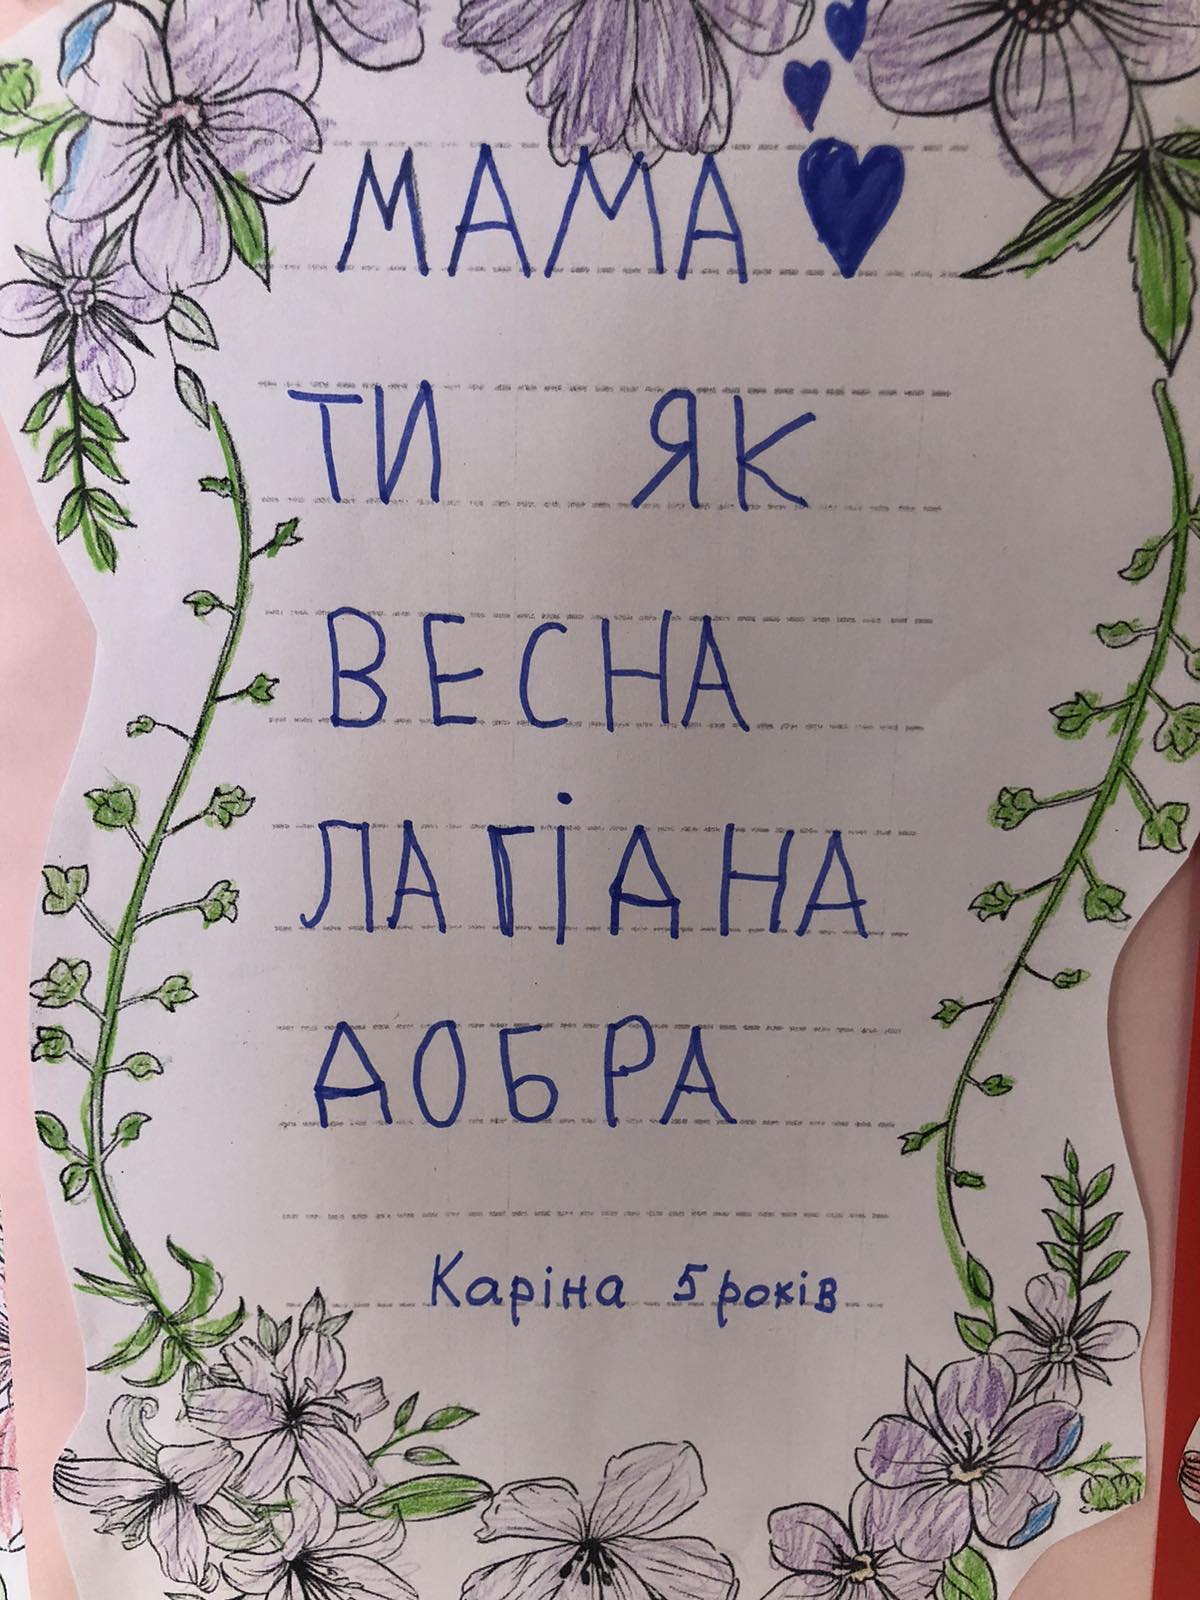 МАМА
ТИ ЯК
ВЕСНА
ЛАГІДНА
ДОБРА
Каріна 5 років